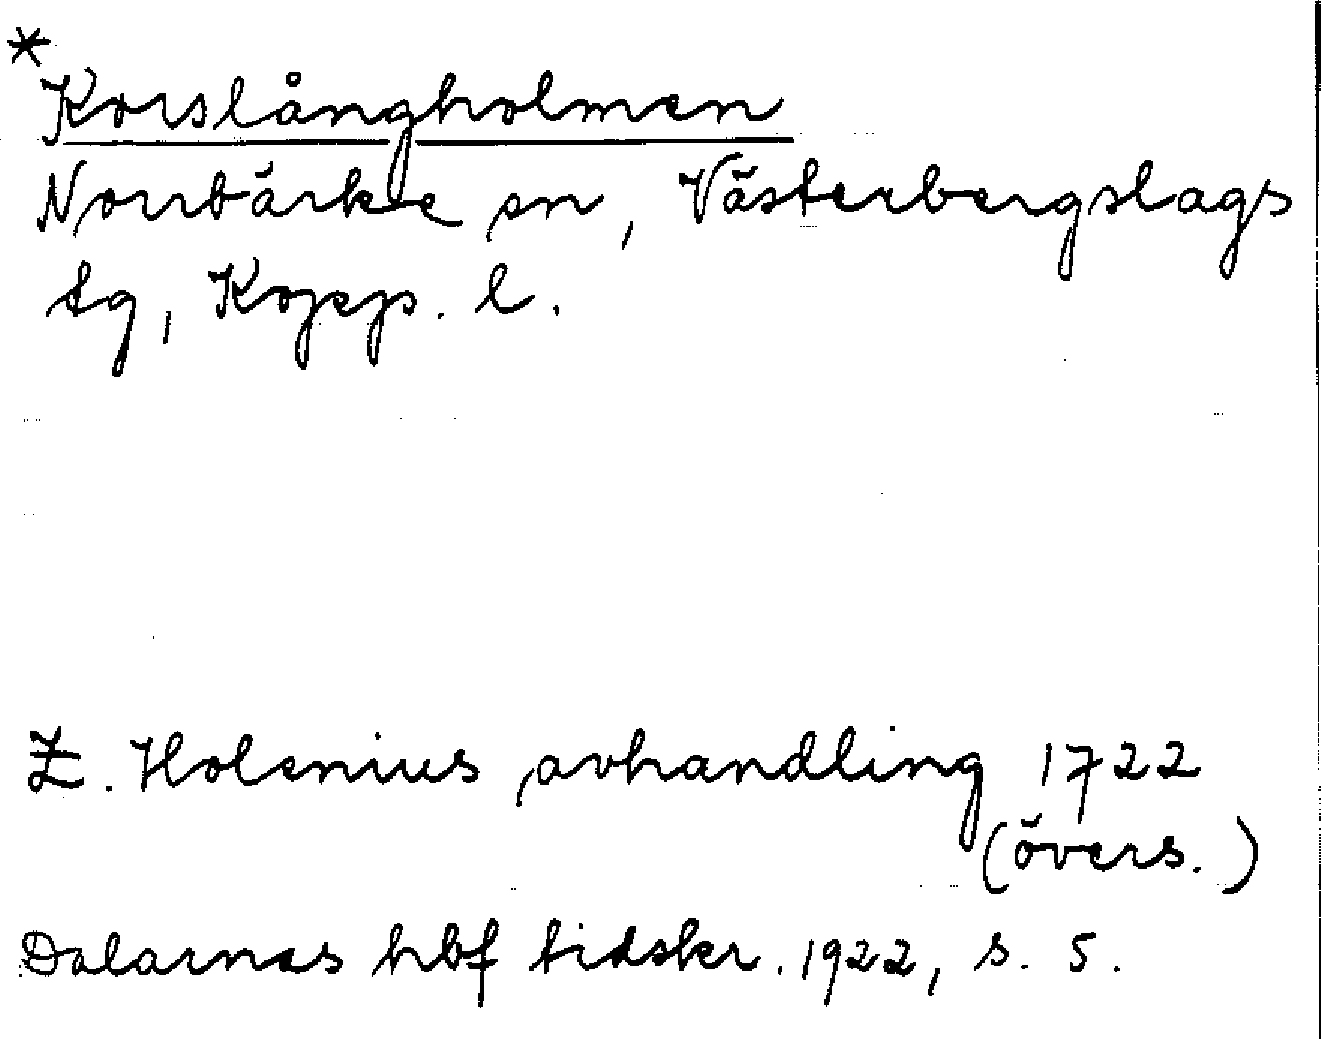 *
Korslångholmen
Norrbärke sn, Västerbergslags
tg, Kopp. l.
Z. Holenius avhandling 1722
(övers.)
Dalarnas hbf tidskr. 1922, s. 5.